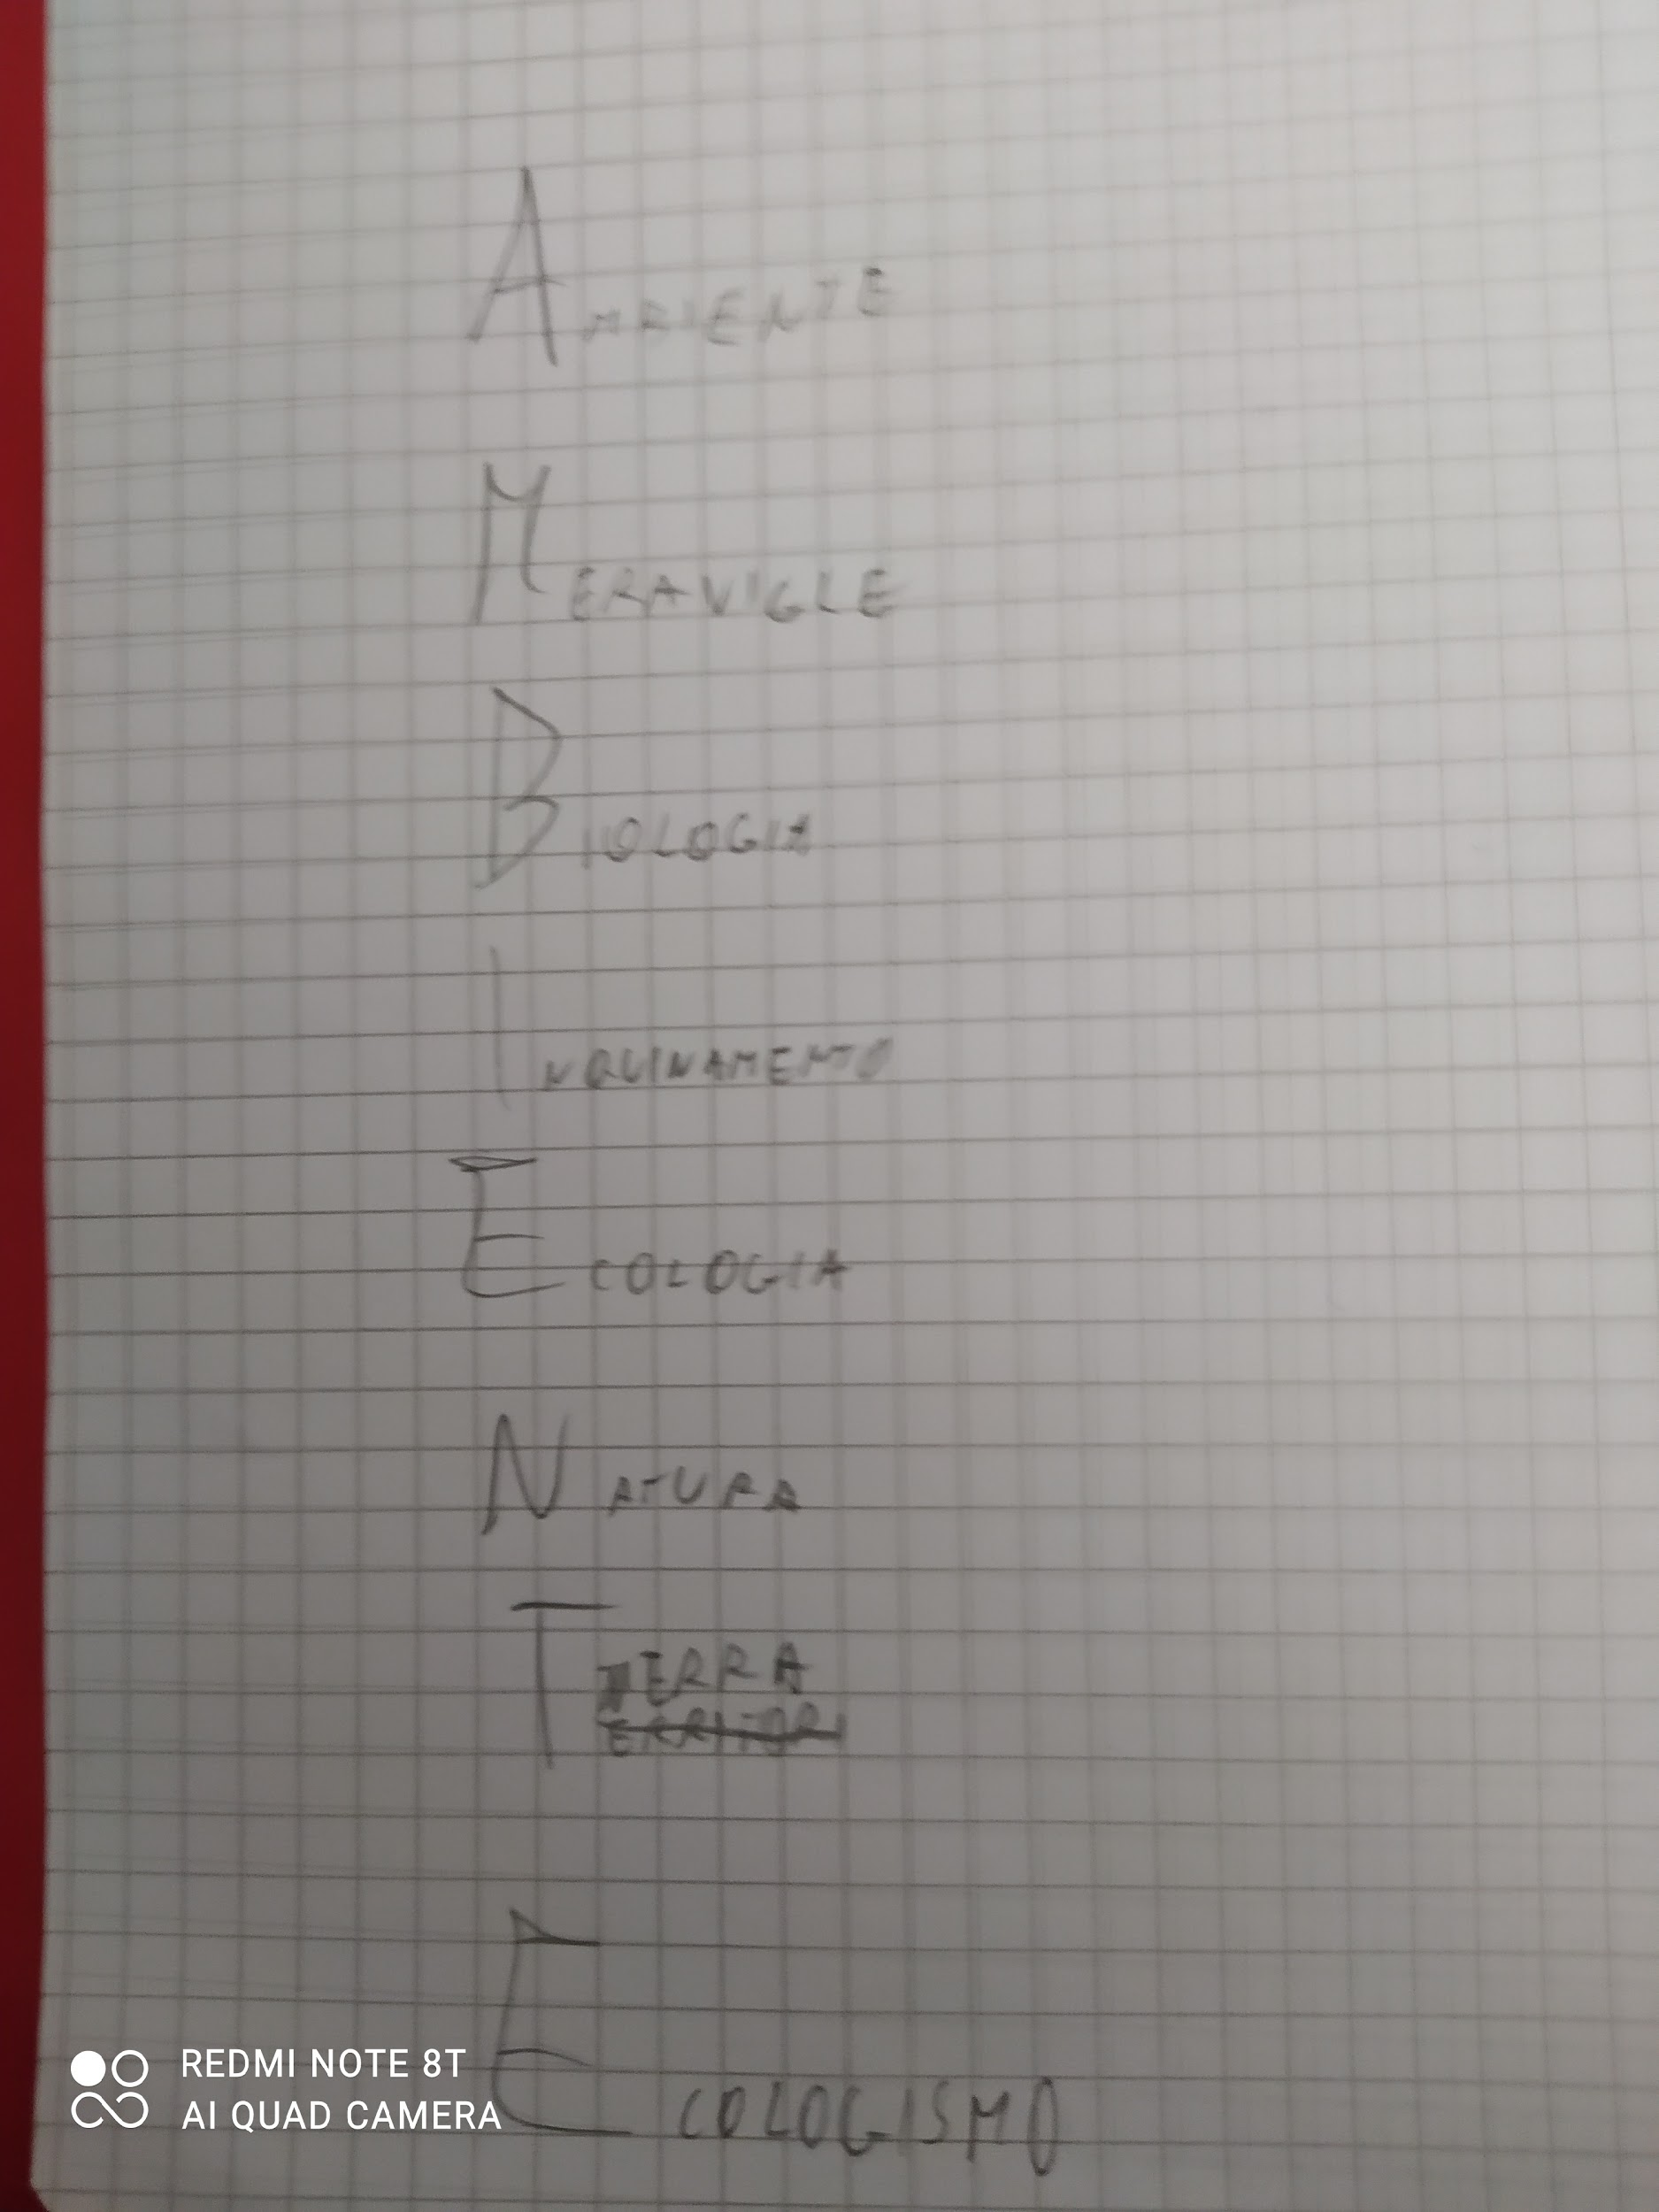 AMBIENTE
MERAVIGLE
BIOLOGIA
INQUINAMENTO
ECOLOGIA
NATURA
TERRA
ERRITORI
ECOLOGISMO
REDMI NOTE 8T
AI QUAD CAMERA